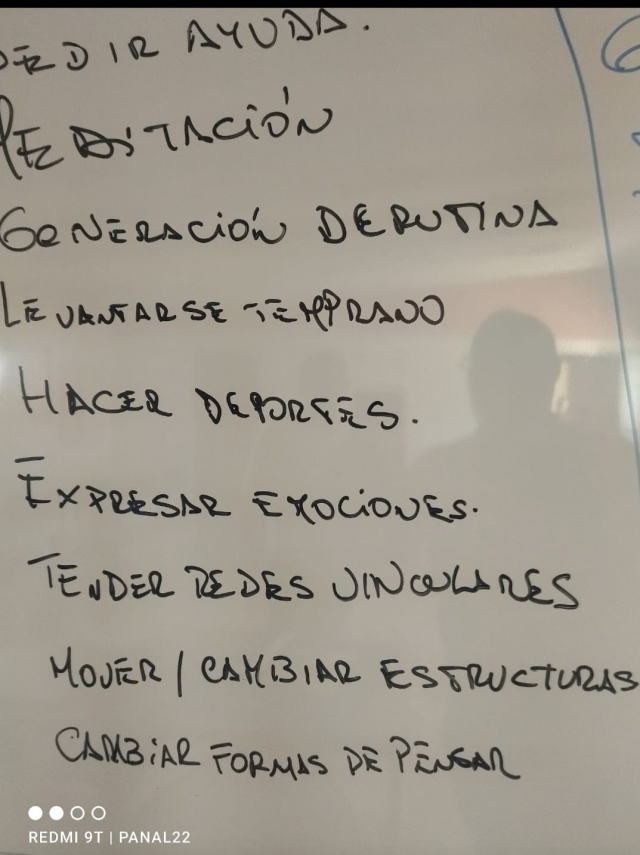 PEDIR AYUDA.
MEDITACIÓN
GENERACIÓN DE RUTINA
LEVANTARSE TEMPRANO
HACER DEPORTES.
EXPRESAR EMOCIONES.
TENDER REDES VINCULARES
MOVER / CAMBIAR ESTRUCTURAS
CAMBIAR FORMAS DE PENSAR
REDMI 9T | PANAL22